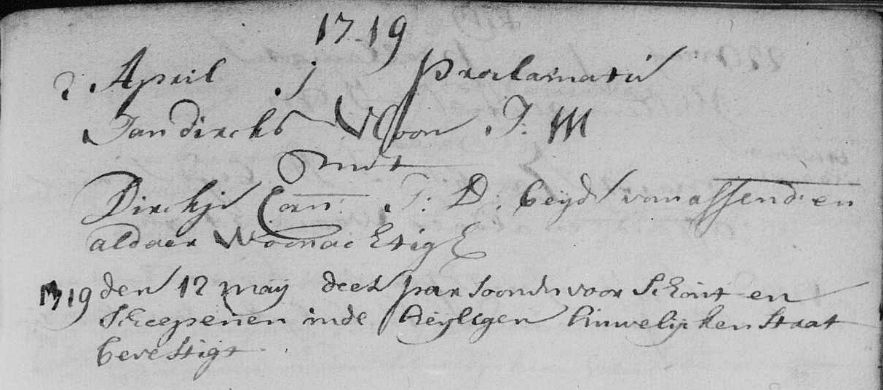 1719
2 April . j proclamatie
Jan dircks Vloon J: M
met
Dirckje Corn: J: D: beyde van assend: en
aldaer Woonachtigh
1719 den 12 may deese parsoonen voor Schout en
Scheepenen inde Heyligen huwelijcken Staat
bevestigt